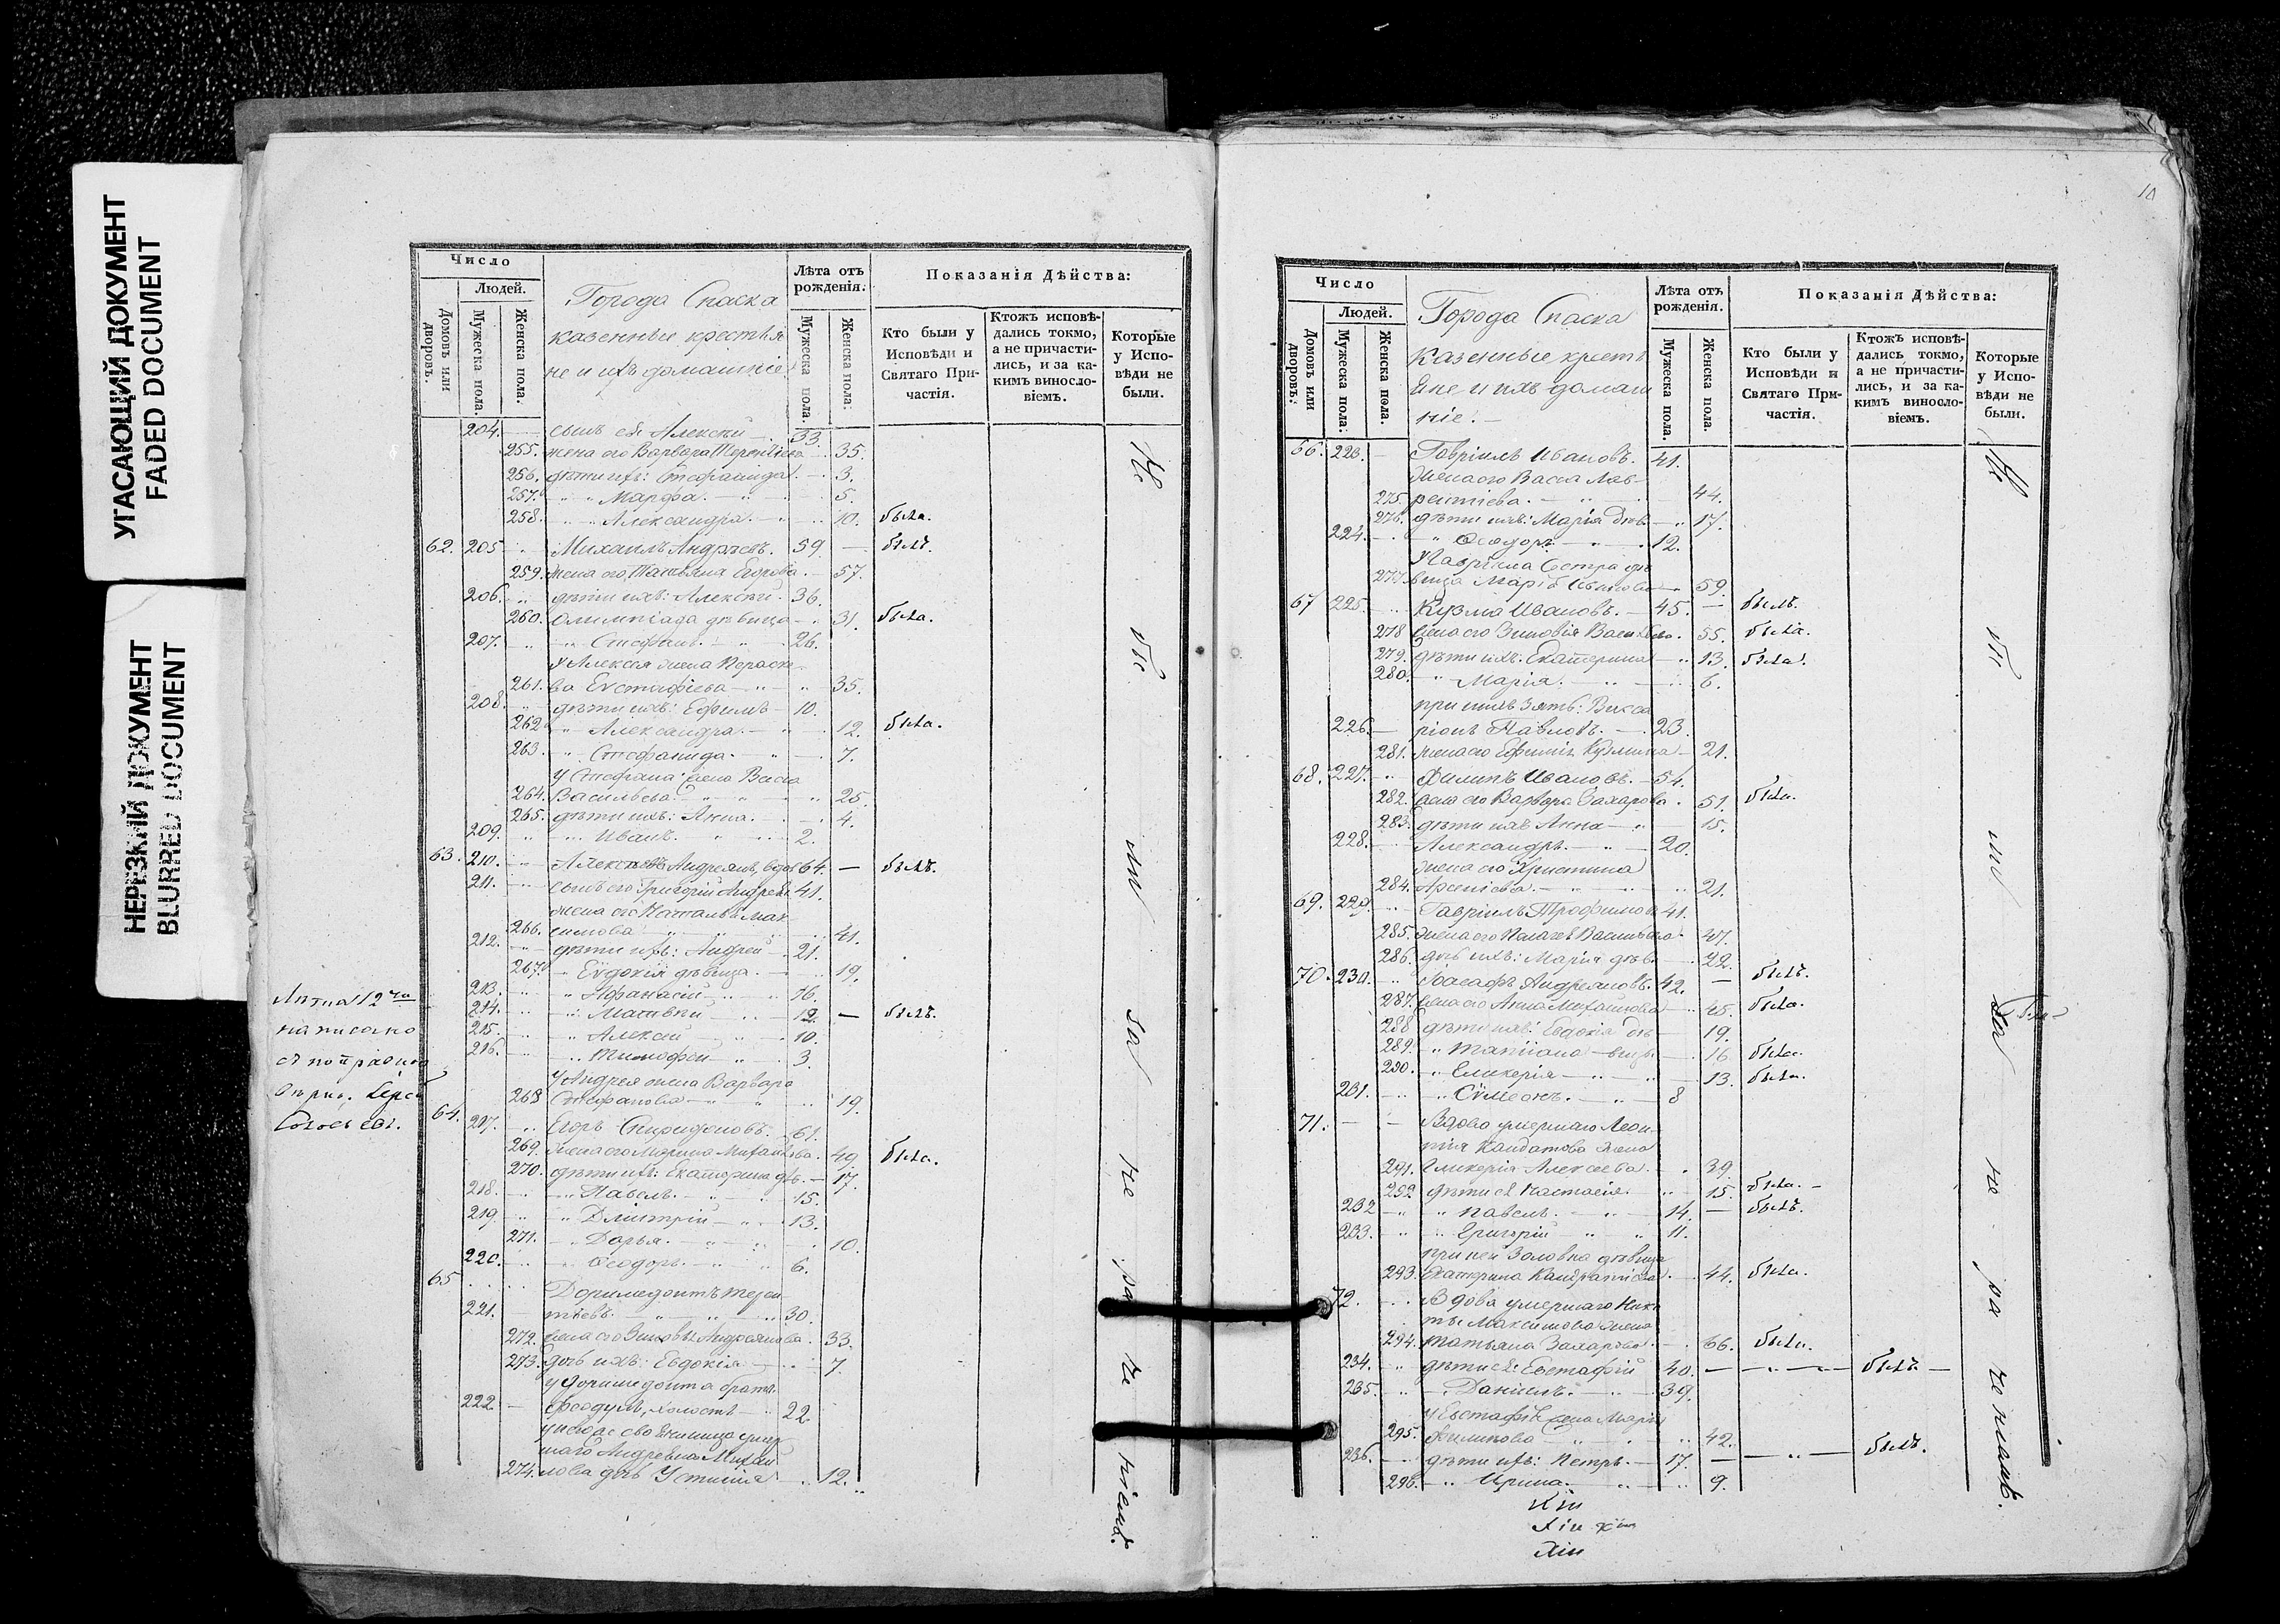 УГАСАЮЩИЙ ДОКУМЕНТ
FADED DOCUMENT
НЕРЕЗКИЙ ДОКУМЕНТ
BLURRED DOCUMENT
Число
Людей.
Домовъ или дворовъ.
Мужеска пола.
Женска пола.
Города Спаска
казенные крестья
не и ихъ домашніе
Лѣта отъ рожденія.
Мужеска пола.
Женска пола.
Показанія Дѣйства:
Кто были у Исповѣди и Святаго Причастія.
Ктожъ исповѣдались токмо, а не причастились, и за какимъ винословіемъ.
Которые у Исповѣди не были.
204. сынъ ея Алексѣй 33.
255. жена его Варвара 35.
256. дѣти ихъ: Стефанида 3.
257. Марфа. 5.
258. Александра. 10. была.
62. 205. Михаилъ Андреевъ. 59. — былъ.
259. жена его Татьяна Егорова. 57.
206. дѣти ихъ: Алексѣй. 36.
260. Олимпіада дѣвица 31. была.
207. Стефанъ. 26.
у Алексѣя жена Параске
261. ва Евстафіева 35.
208. дѣти ихъ: Ефимъ 10.
262. Александра. 12. была.
263. Стефанида. 7.
у Стефана жена Васса
264. Васильева. 25.
265. дѣти ихъ: Анна. 4.
209. Иванъ. 2.
63. 210. 64. — былъ.
211. сынъ его Григорій 41.
жена его Наталья Мак
266. симова 41.
212. дѣти ихъ: Андрей 21.
267. Евдокія дѣвица. 19.
213. Афанасій 16.
214. Матвѣй 12. — былъ.
215. Алексѣй 10.
216. Тимофей 3.
у Андрея жена Варвара
268 Стефанова 19.
64. 217. Егоръ Спиридоновъ. 61.
269. жена его Марина Михайлова. 49 была.
270. дѣти ихъ: Екатерина дѣв. 17.
218. Павелъ. 15.
219. Дмитрій 13.
271. Дарья. 10.
220. Ѳеодоръ. 6.
65 Доримедонтъ Терен
221. тіевъ. 30.
272. жена его Зиновья Андреянова. 33.
273. дочь ихъ: Евдокія 7.
у Доримедонта братъ
222. Ѳеодулъ, холостъ 22.
274. дочь Устинія 12.
написано
съ поправкой
Не
бы
ли
за
не
ра
че
ніемъ.
10
Число
Людей.
Домовъ или дворовъ.
Мужеска пола.
Женска пола.
Города Спаска
казенные кресть
яне и ихъ домаш
ніе.
Лѣта отъ рожденія.
Мужеска пола.
Женска пола.
Показанія Дѣйства:
Кто были у Исповѣди и Святаго Причастія.
Ктожъ исповѣдались токмо, а не причастились, и за какимъ винословіемъ.
Которые у Исповѣди не были.
66. 223. Гавріилъ Ивановъ. 41.
жена его Васса Лав
275. рентіева. 44.
276. дѣти ихъ: Марія дѣв. 17.
224. Ѳеодоръ 12.
у Гавріила сестра дѣ
277. вица Марія Иванова 59.
67 225. Кузма Ивановъ. 45. — былъ.
278 жена его Зиновія Васильева. 55. была.
279. дѣти ихъ: Екатерина 13. была.
280. Марія. 6.
при нихъ зять: Висса
226. ріонъ Павловъ. 23.
281. жена его Ефимія Кузмина 21.
68. 227. Филипъ Ивановъ. 54.
282. жена его Варвара Захарова. 51. была.
283. дѣти ихъ Анна 15.
228. Александръ. 20.
жена его Христина
284. Арсеніева. 21.
69. 229. Гавріилъ Трофимовъ 41.
285. жена его Пелагея Васильева 47.
286. дочь ихъ: Марія дѣв. 22.
70. 230. Іоасафъ Андреяновъ. 42. — былъ.
287. жена его Анна Михайлова 45. была.
288 дѣти ихъ: Евдокія дѣ 19.
289. Татіана вицы 16. была.
290. Гликерія 13. была.
231. Сѵмеонъ. 8
71. Вдова умершаго Леон
тія Кондатова жена
291. Гликерія Алексѣева. 39.
292 дѣти ея Настасія. 15. была.
232 Павелъ. 14. — былъ.
233. Григорій 11.
при ней золовка дѣвица
293. Екатерина Кондратіева. 44. была.
72. Вдова умершаго Ники
ты Максимова жена
294. Татьяна Захарова. 66. была.
234. дѣти ея: Евстафій 40. былъ
235. Даніилъ. 39.
у Евстафія жена Марія
295. Филипова 42.
236. дѣти ихъ: Петръ. 17. былъ.
296. Ирина. 9.
Не
бы
ли
за
не
ра